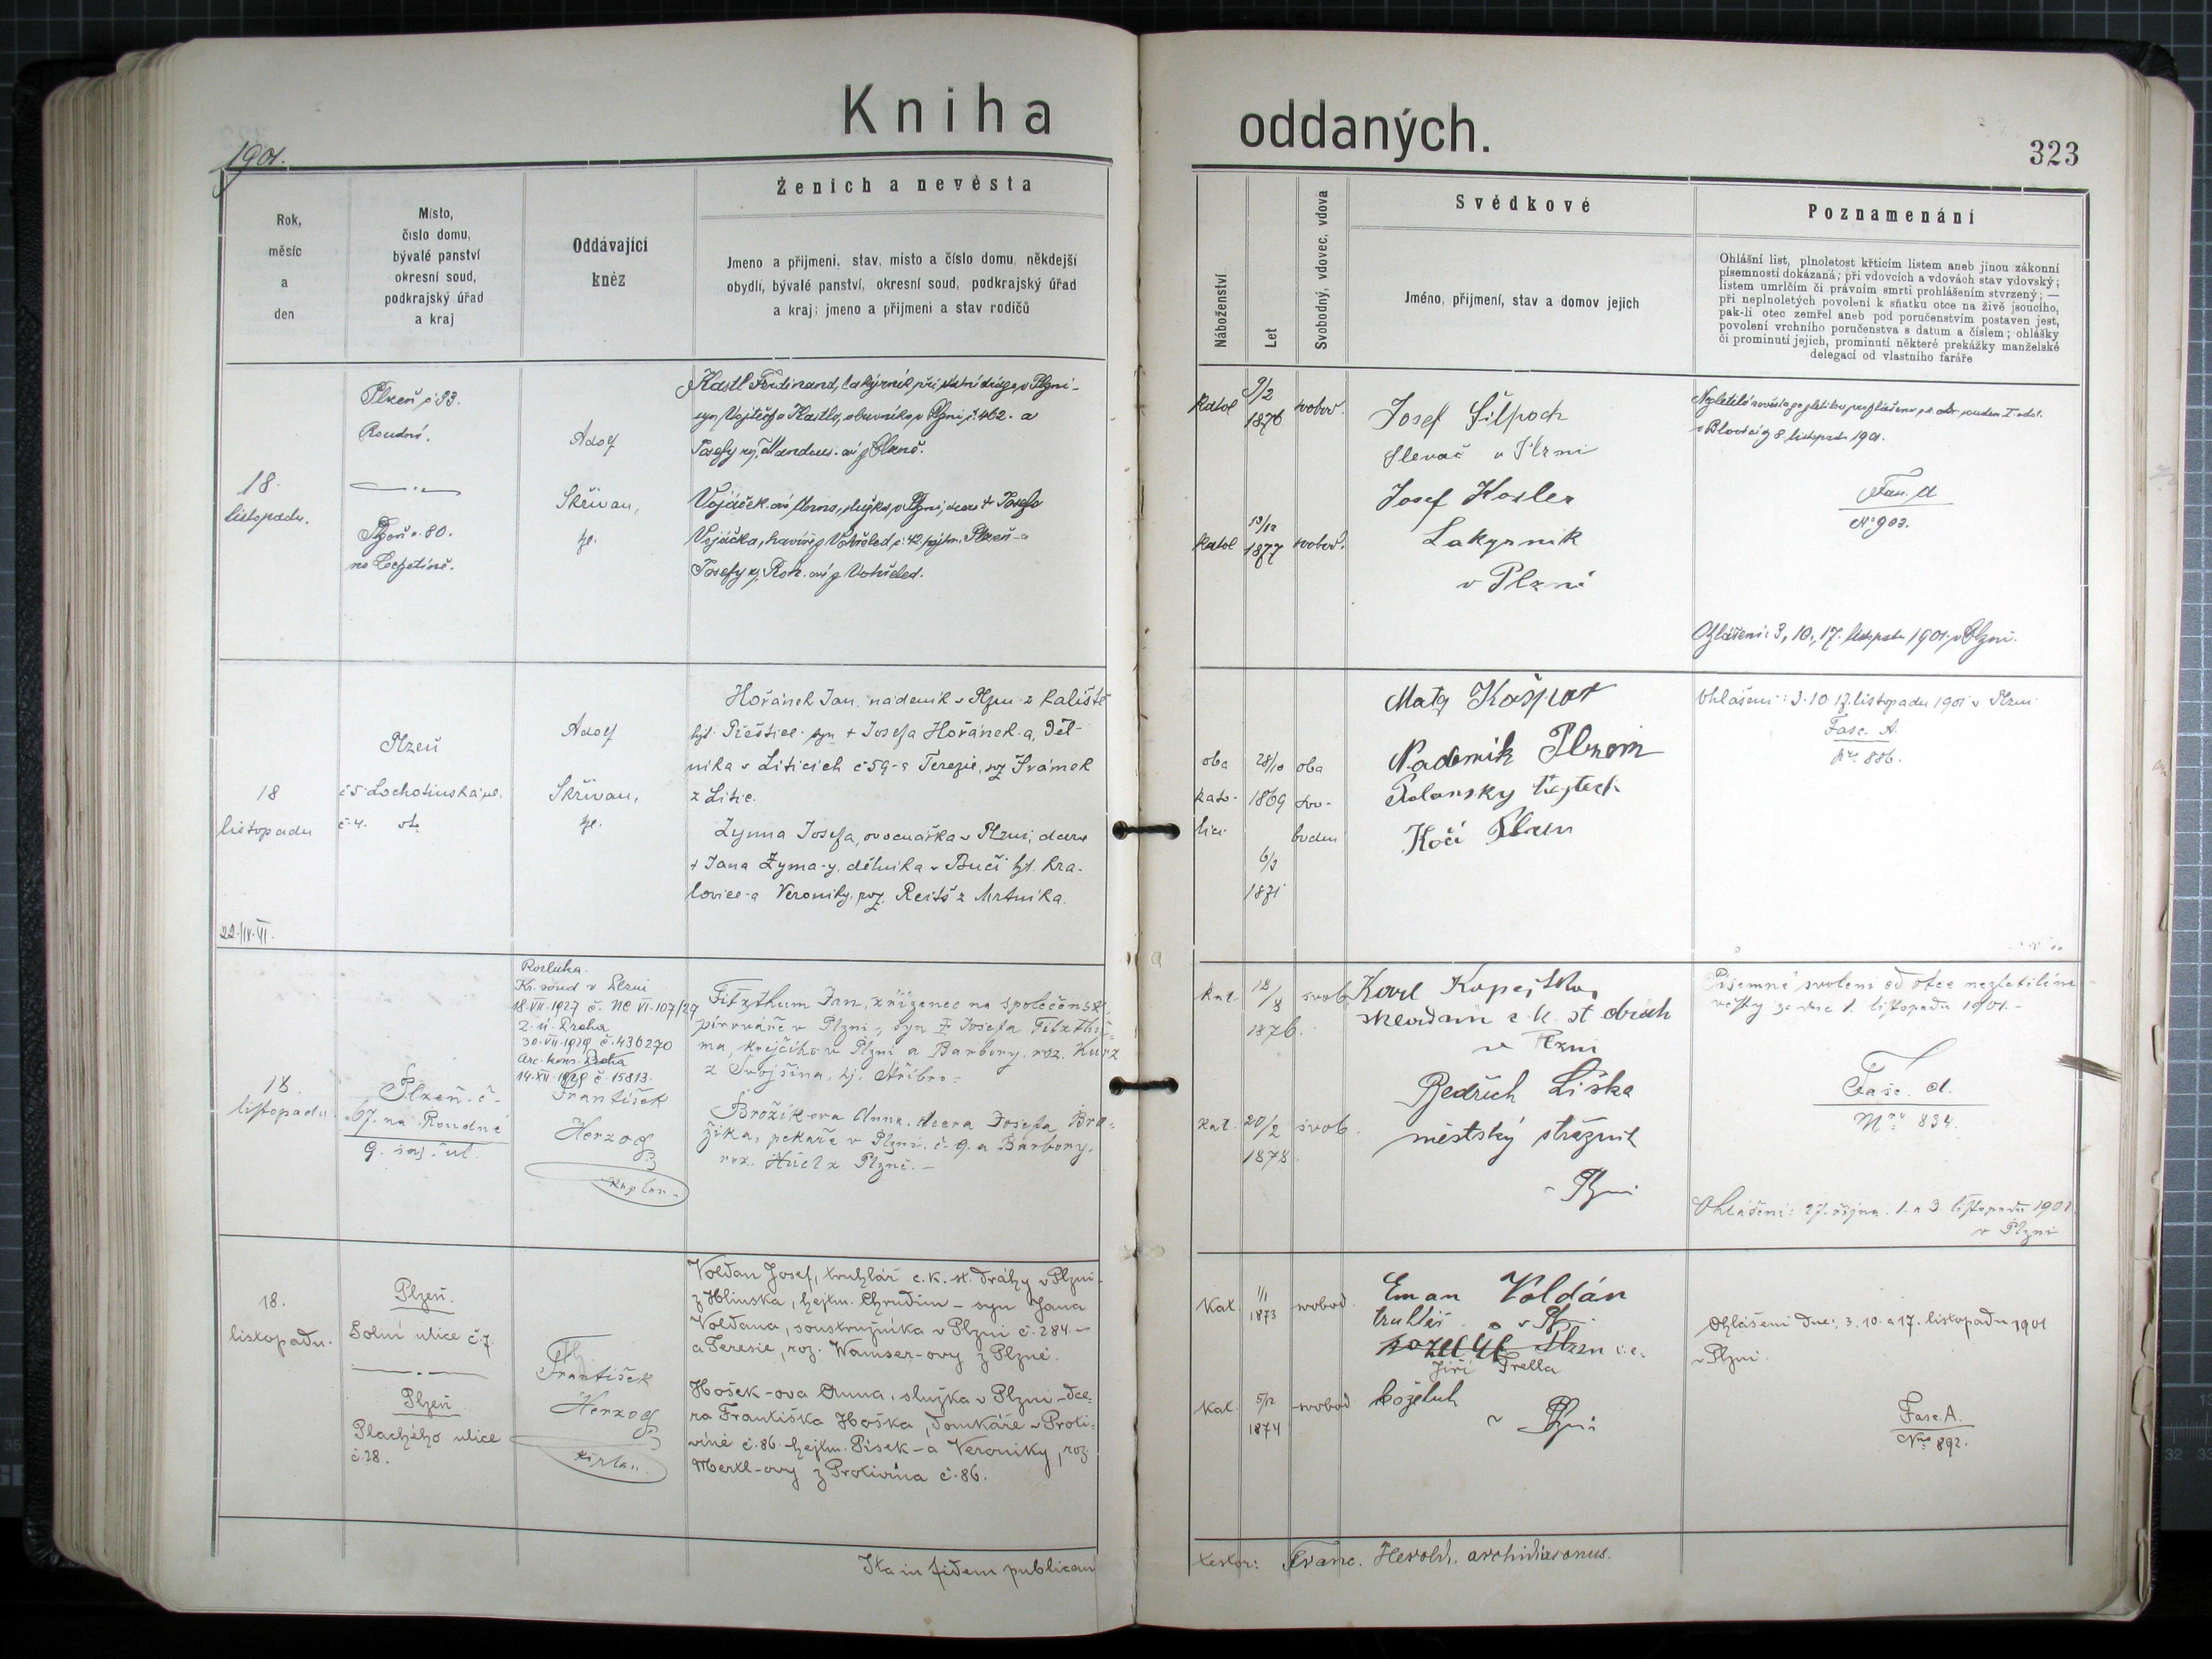 Kniha oddaných.
323
1901.
Rok,
měsíc
a
den
Místo,
číslo domu,
bývalé panství
okresní soud,
podkrajský úřad
a kraj
Oddávající
kněz
Ženich a nevěsta
Jmeno a přijmeni, stav, misto a číslo domu, někdejší
obydlí, bývalé panství, okresní soud, podkrajský úřad
a kraj; jmeno a přijmeni a stav rodičů
Náboženství
Let
Svobodný, vdovec, vdova
Svědkové
Jméno, přijmení, stav a domov jejich
Poznamenání
Ohlášní list, plnoletost křticím listem aneb jinou zákonní
písemností dokázaná; při vdovcích a vdovách stav vdovský;
listem umrlčím či právním smrti prohlášením stvrzený; —
při neplnoletých povolení k sňatku otce na živě jsoucího,
pak-li otec zemřel aneb pod poručenstvím postaven jest,
povolení vrchního poručenstva s datum a číslem; ohlášky
či prominutí jejich, prominutí některé prekážky manželské
delegací od vlastního faráře
18.
listopadu.
Plzeň č 93.
Roudná.
Plzeň č. 80.
na Lochotíně.
Adolf
Skřivan,
kpl.
Kastl Ferdinand, lakýrník při státní dráze v Plzni -
syn Vojtěcha Kastla, obuvníka v Plzni č. 462. a
Josefy roz. Mandaus. ové z Plzně.
Vojáček. ová Anna, služka v Plzni, dcera + Josefa
Vojáčka, havíře z Vohřeled č. 42. hejtm. Plzeň - a
Josefy roz. Roh. ové z Vohřeled.
Katol 9/2 1876 svobod.
Katol 13/12 1877 svobod.
Josef Šilpoch
slevač v Plzni
Josef Kosler
Lakyrnik
v Plzni
v Blovicích 8 listopadu 1901.
Fasc. A
No 903.
Ohlášeni: 3, 10, 17. listopadu 1901 v Plzni.
18
listopadu
22./IX. VI.
Plzeň
č 5 Lochotinská ul.
č. 4.
Adolf
Skřivan,
kpl.
Hořánek Jan, nádeník v Plzni z Kaliště
hejt. Přeštice - syn + Josefa Hořánek-a, děl-
níka v Liticích č 59 - a Terezie, roz Šrámek
z Litic.
Zymna Josefa, ovocnářka v Plzni, dcera
+ Jana Zyma-y, dělníka v Bučí hjt. Kra-
lovice - a Veroniky, roz. Reitš z Mrtníka.
oba
kato-
líci
28/10
1869
6/3
1871
oba
svo-
bodni
Matg Kašpar
Nadenik Plzein
Polansky Vojtech
Kočí Plzen
Ohlášeni: 3. 10. 17. listopadu 1901 v Plzni
Fasc. A.
Nro. 886.
18.
listopadu.
Plzeň. č.
67. na Roudné
Rozluka.
Kr. soud v Plzni
18. VII. 1927 č. Nc VI. 107/27
Z. ú. Praha
30. VII. 1929 č. 436270
Arc. kons. Praha
14. XII. 1929 č. 15813.
František
Herzog
kaplan.
Fitzthum Jan, zřízenec na společensk.
pivováře v Plzni, syn + Josefa Fitzthu-
ma, krejčího v Plzni a Barbory, roz. Kurz
z Svojšína, hj. Stříbro.
Brožíkova Anna, dcera Josefa Bro-
žíka, pekaře v Plzni. č. 9. a Barbory,
roz. Hüel z Plzně. -
Kat. 18/8 1876. svob.
Kat. 20/2 1878. svob.
Karl Kopejtko,
v Plzni
Bedřich Liška
městský strážník
v Plzni
Písemné svolení od otce nezletilé ne-
věsty ze dne 1. listopadu 1901. -
Fasc. A.
Nro. 834.
Ohlášeni: 27. října. 1. a 3. listopadu 1901
v Plzni
18.
listopadu.
Plzeň.
Solní ulice č. 7.
Plzeň
Plachého ulice
č. 28.
František
Herzog
kaplan.
Voldan Josef, truhlář c. k. st. dráhy v Plzni -
z Hlinska, hejtm. Chrudim - syn Jana
Voldana, soustružníka v Plzni č. 284. -
a Teresie, roz. Wamser-ovy z Plzně.
Hošek-ova Anna, služka v Plzni - dce-
ra Františka Hoška, domkáře v Proti-
víně č. 86. hejtm. Písek - a Veroniky, roz
Merkl-ovy z Protivína č. 86.
Kat. 1/1 1873 svobod.
Kat. 5/12 1874 svobod
Eman Voldán
truhlář v Pl.
Jiří Trella
koželuh
v Plzni
Ohlášeni dne: 3. 10. a 17. listopadu 1901
v Plzni.
Fasc. A.
Nro 892.
Ita in fidem publicam
testor: Franc. Herold, archidiaconus.